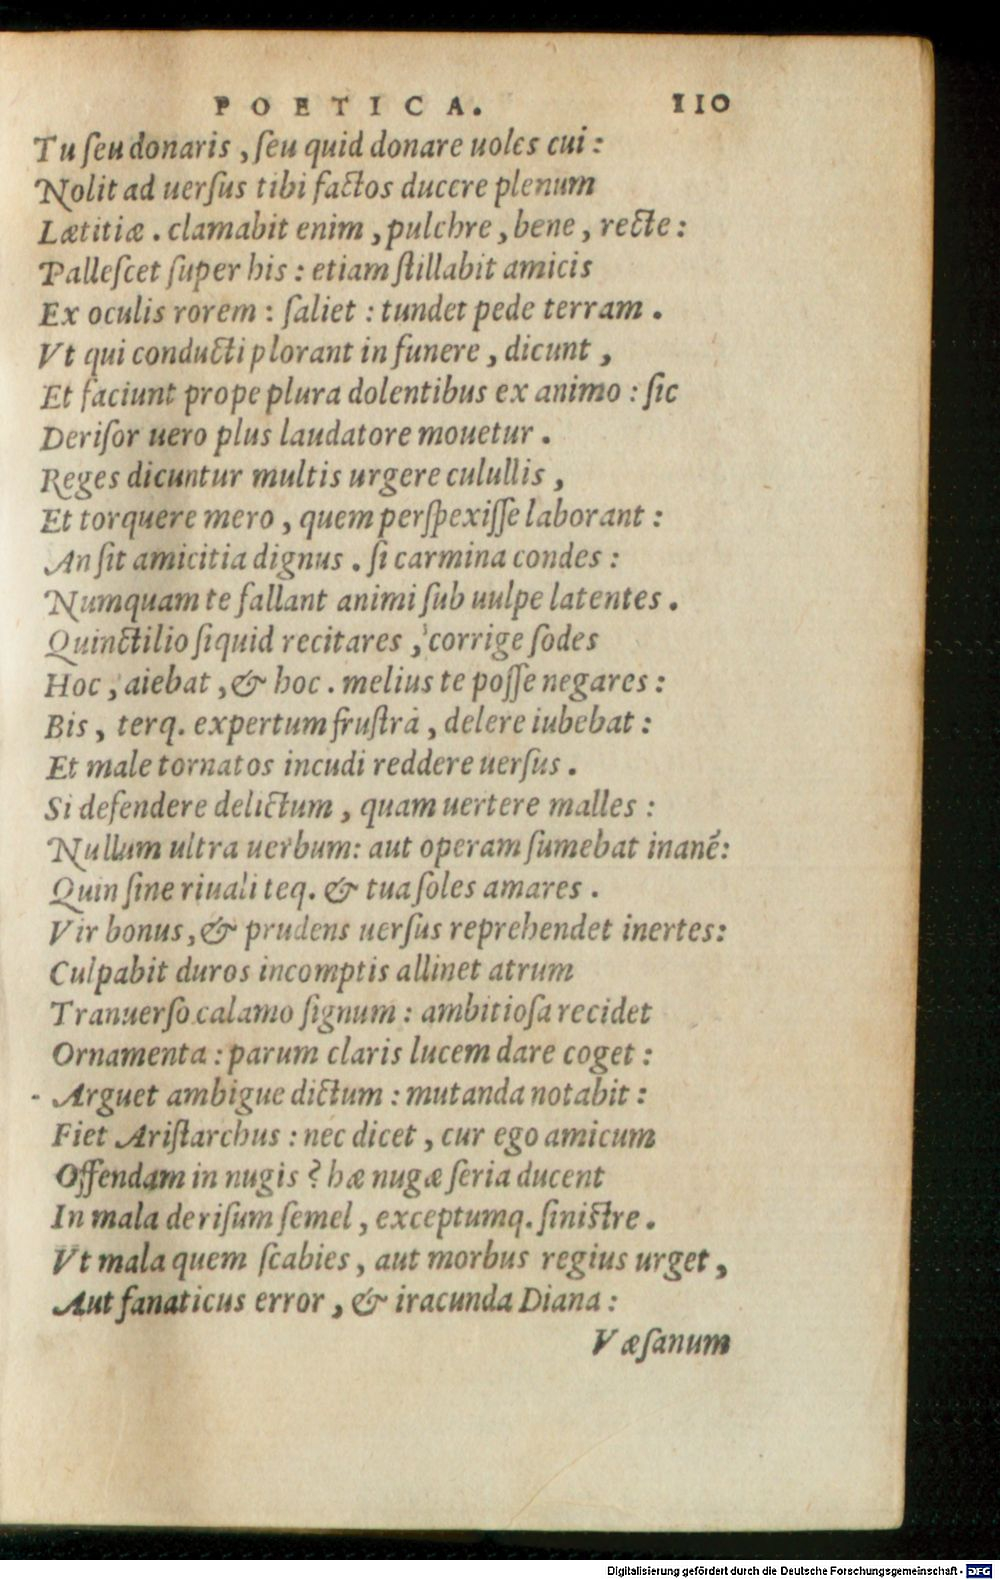 POETICA. 110
Tu ſeu donaris, ſeu quid donare uoles cui:
Nolit ad uerſus tibi factos ducere plenum
Lætitiæ. clamabit enim, pulchre, bene, recte:
Palleſcet ſuper his: etiam ſtillabit amicis
Ex oculis rorem: ſaliet: tundet pede terram.
Vt qui conducti plorant in funere, dicunt,
Et faciunt prope plura dolentibus ex animo: ſic
Deriſor uero plus laudatore mouetur.
Reges dicuntur multis urgere culullis,
Et torquere mero, quem perſpexiſſe laborant:
An ſit amicitia dignus. ſi carmina condes:
Numquam te fallant animi ſub uulpe latentes.
Quinctilio ſiquid recitares, corrige ſodes
Hoc, aiebat, & hoc. melius te poſſe negares:
Bis, terq. expertum fruſtrà, delere iubebat:
Et male tornatos incudi reddere uerſus.
Si defendere delictum, quam uertere malles:
Nullum ultra uerbum: aut operam ſumebat inanē:
Quin ſine riuali teq. & tua ſoles amares.
Vir bonus, & prudens uerſus reprehendet inertes:
Culpabit duros incomptis allinet atrum
Tranuerſo calamo ſignum: ambitioſa recidet
Ornamenta: parum claris lucem dare coget:
Arguet ambigue dictum: mutanda notabit:
Fiet Ariſtarchus: nec dicet, cur ego amicum
Offendam in nugis? hæ nugæ ſeria ducent
In mala deriſum ſemel, exceptumq. ſiniſtre.
Vt mala quem ſcabies, aut morbus regius urget,
Aut fanaticus error, & iracunda Diana:
Væſanum
Digitalisierung gefördert durch die Deutsche Forschungsgemeinschaft - DFG